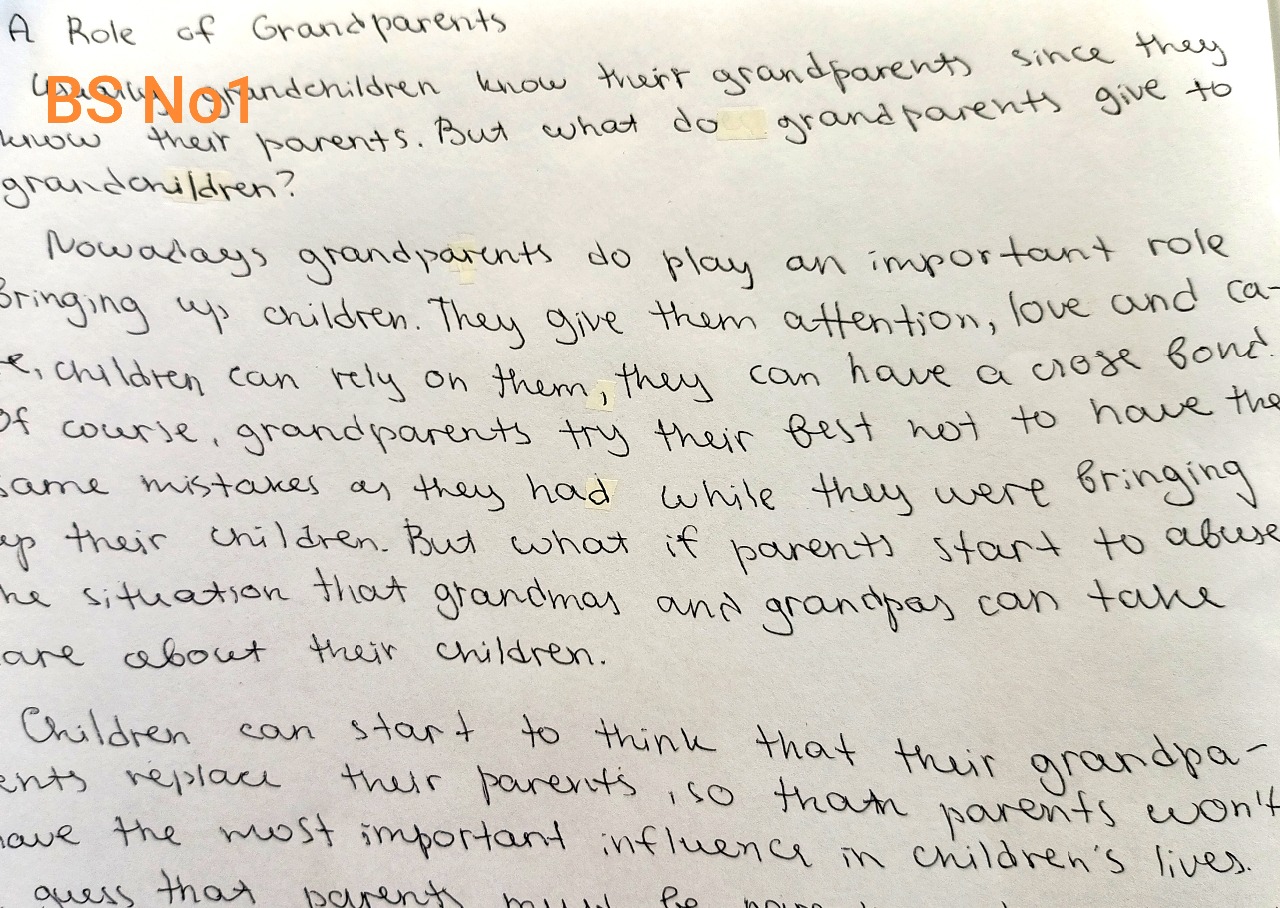 A Role of Grandparents
BS No1
Usually grandchildren know their grandparents since they
know their parents. But what do grandparents give to
grandchildren?
Nowadays grandparents do play an important role
Bringing up children. They give them attention, love and ca-
e, children can rely on them, they can have a close bond.
Of course, grandparents try their best not to have the
same mistakes as they had while they were bringing
up their children. But what if parents start to abuse
he situation that grandmas and grandpas can take
are about their children.
Children can start to think that their grandpa-
ents replace their parents, so that parents won't
have the most important influence in children's lives.
guess that parents must be